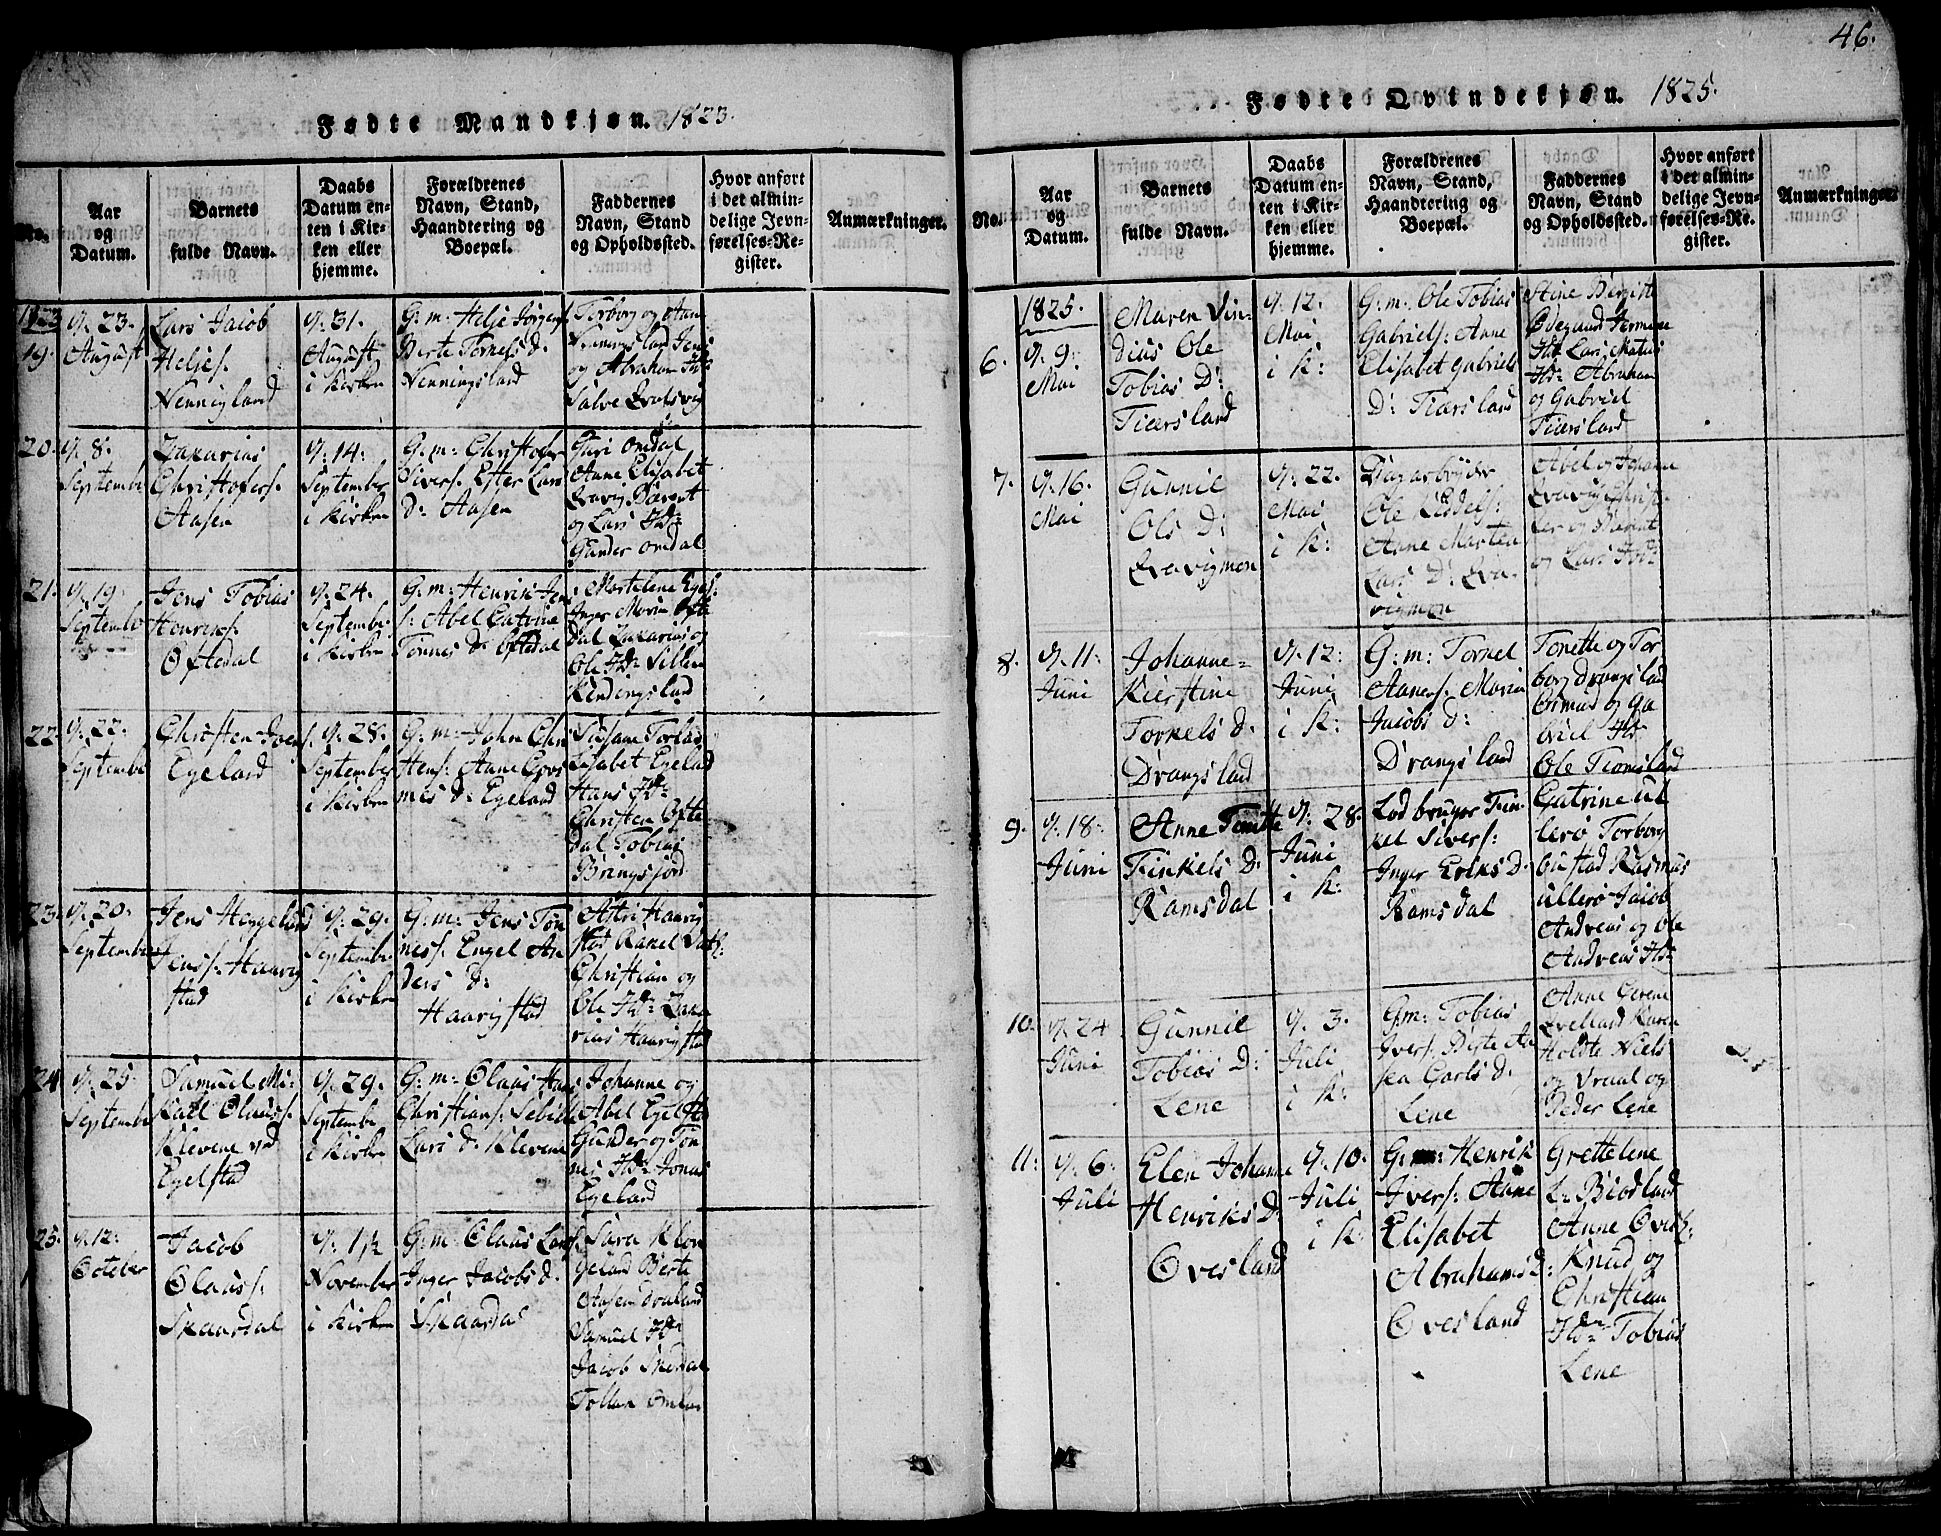 Fødte Mandkjøn. 1823.
No.
Aar
og
Datum.
Barnets
fulde Navn.
Daabs
Datum en-
ten i Kir-
ken eller
hjemme.
Forældrenes
Navn, Stand,
Haandtering og
Boepæl.
Faddernes
Navn, Stand
og Opholdssted.
Hvor anført
i det almin-
delige Jevn-
førelses-Re-
gister.
Anmærkninger.
1823
19.
d. 23.
August
Lars Jacob
Heljes.
Nenningland
d. 31.
August
i Kirken
G: m: Helje Jørgens.
Berte Tornels d.
Nenningsland
Torborg og
Jens
og Abraham
Salve
20.
d. 8.
September
Zakarias
Christofers.
Aasen
d. 14.
September
i Kirken
G: m: Christofer
Sivers. Ester Lars
D: Aasen
Guri Omdal
Anne Elisabet
Berent
og Lars
Gunder Omdal
21.
d. 19.
September
Jens Tobias
Henriks.
Oftedal
d. 24.
September
i Kirken
G: m: Henrik Jens
s: Abel Catrine
Tønnes D. Oftedal
Inger Maria Ofte
dal Zakarias og
Ole
Kindingsland
22.
d. 22.
September
Christen Joens.
Egeland
d. 28.
September
i Kirken
G: m: John Chri
stens. Anne
D: Egeland
Susane
Lisabet Egeland
Hans
Christen Ofte
dal Tobias
Bringsjord
23.
d. 20.
September
Jens Heggeland
Jenss. Haavig
stad
d. 29.
September
i Kirken
G: m: Jens Tøn
ness. Engel An
ders D:
Haavigstad
Astri Haavig
stad Rakel
Christian og
Ole Zaka
rias Haavigstad
24
d. 25.
September
Samuel Mi-
kall Olauss.
Klevene ved
Egelstad
d. 29.
September
i Kirken
G: m: Olaus Hans
Christians. Sebille
Lars D. Klevene
Johanne og
Abel Egelstad
Gunder og Tøn
nes Jonas
Egeland
25.
d. 12.
October
Jacob
Olauss.
Skaardal
November
i Kirken
G: m: Olaus Lars
Inger Jacobs d.
Skaardal
Sara
Berte
Aasen
Samuel
Jacob
46.
Fødte Qvindekjøn. 1825.
No.
Aar
og
Datum.
Barnets
fulde Navn.
Daabs
Datum en-
ten i Kir-
ken eller
hjemme.
Forældrenes
Navn, Stand,
Haandtering og
Boepæl.
Faddernes
Navn, Stand
og Opholdssted.
Hvor anført
i det almin-
delige Jevn-
førelses-Re-
gister.
Anmærkninger.
1825.
6.
d. 9.
Mai
Maren Din-
dias Ole
Tobias D:
Tiersland
d. 12.
Mai
i K:
G: m: Ole Tobias
Gabriels: Anne
Elisabet Gabriels
D: Tiersland
Stine Birgitte
Ødegaard
Lars Matias
Abraham
og Gabriel
Tiersland
7.
d. 16.
Mai
Gunnil
Ols D:
Qvavigmoen
d. 22.
Mai
i K:
Ole
Anne Marten
Lars D: Qva-
vigmoen
Abel og Johanne
og Berent
og Lars
8.
d. 11:
Juni
Johanne-
Kierstine
Torkels D.
Drangsland
d. 12.
Juni
i K:
G: m: Torkel
Aaners. Maria
Jacobs D:
Drangsland
Tonette og Tor
borg Drangsland
Osmund og Ga
briel
Ole Tiomsland
9.
d. 18.
Juni
Anne Tonette
Finkels D.
Ramsdal
d. 28.
Juni
i K:
Lodbruger Fin-
kel Sivers:
Inger Eriks D.
Ramsdal
Catrine Ul
lerø Torborg
Bustad Rasmus
Ullerø Jacob
Andreas og Ole
Andreas
10.
d. 24
Juni
Gunnil
Tobias D:
Lene
d. 3.
Juli
i K:
G: m: Tobias
Ivers. Birte An
rea Carls d.
Lene
Anne Serene
Qvelland Karen
Holdte Niels
og Vraal og
Peder Lene
11:
d. 6:
Juli
Elen Johanne
Henriks D.
Overland
d. 10.
Juli
i K:
G: m: Henrik
Ivers: Anne
Elisabet
Abrahams D:
Overland
Grettelene
L: Biodland
Anne Overl:
Knud og
Christian
Tobias
Lene